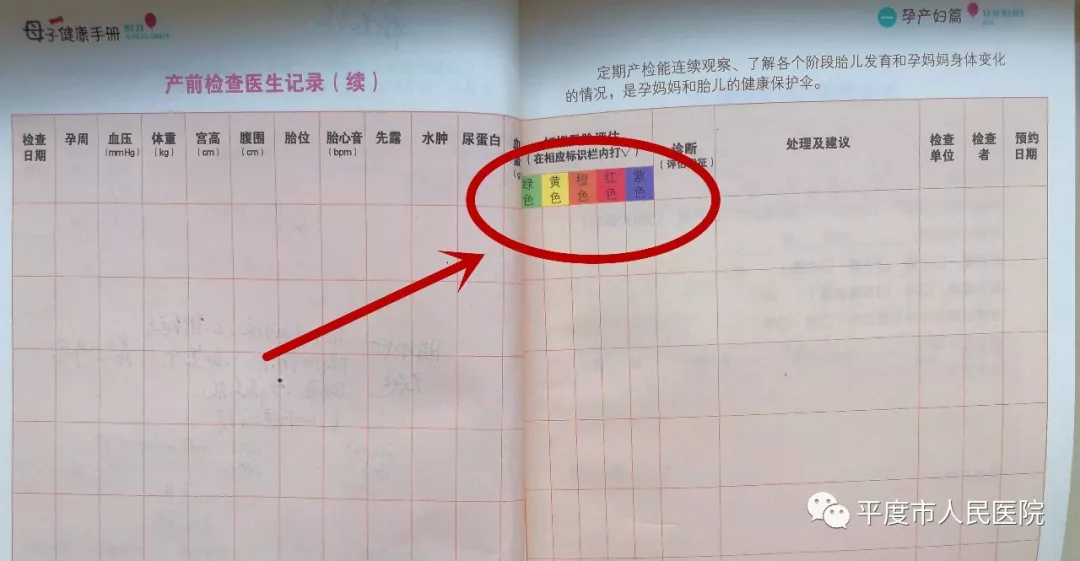 母子健康手册
产前检查医生记录（续）
检查日期
孕周
血压(mmHg)
体重(kg)
宫高(cm)
腹围(cm)
胎位
胎心音(bpm)
先露
水肿
尿蛋白
一 孕产妇篇
定期产检能连续观察、了解各个阶段胎儿发育和孕妈妈身体变化
的情况，是孕妈妈和胎儿的健康保护伞。
（在相应标识栏内打√）
绿色
黄色
橙色
红色
紫色
诊断
处理及建议
检查单位
检查者
预约日期
平度市人民医院